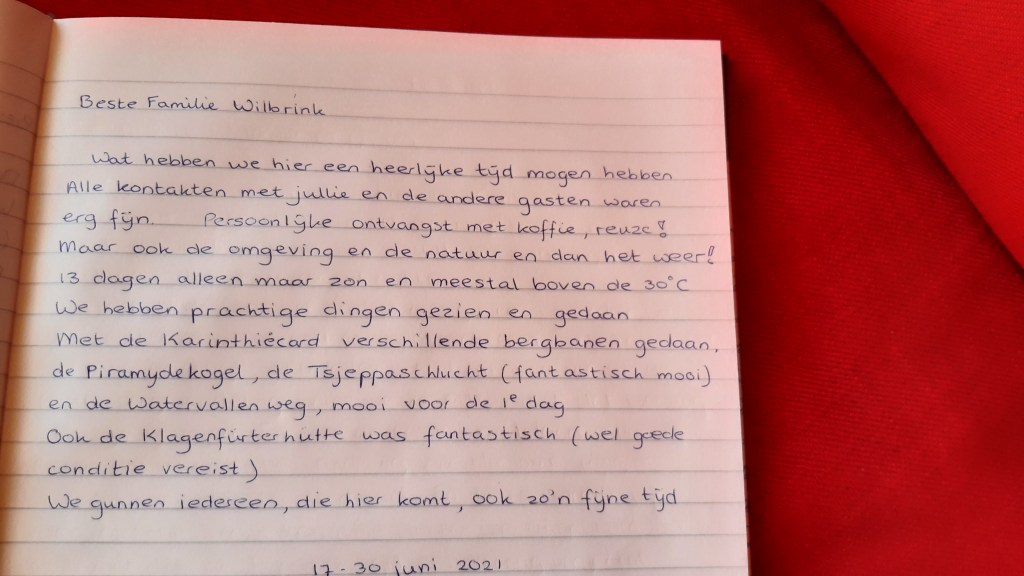 Beste Familie Wilbrink
Wat hebben we hier een heerlijke tijd mogen hebben
Alle kontakten met jullie en de andere gasten waren
erg fijn. Persoonlijke ontvangst met koffie, reuze!
Maar ook de omgeving en de natuur en dan het weer!
13 dagen alleen maar zon en meestal boven de 30°C
We hebben prachtige dingen gezien en gedaan
Met de Karinthiécard verschillende bergbanen gedaan,
de Piramydekogel, de Tsjeppaschlucht (fantastisch mooi)
en de Watervallenweg, mooi voor de 1e dag
Ook de Klagenfürterhütte was fantastisch (wel goede
conditie vereist)
We gunnen iedereen, die hier komt, ook zo'n fijne tijd
17-30 juni 2021